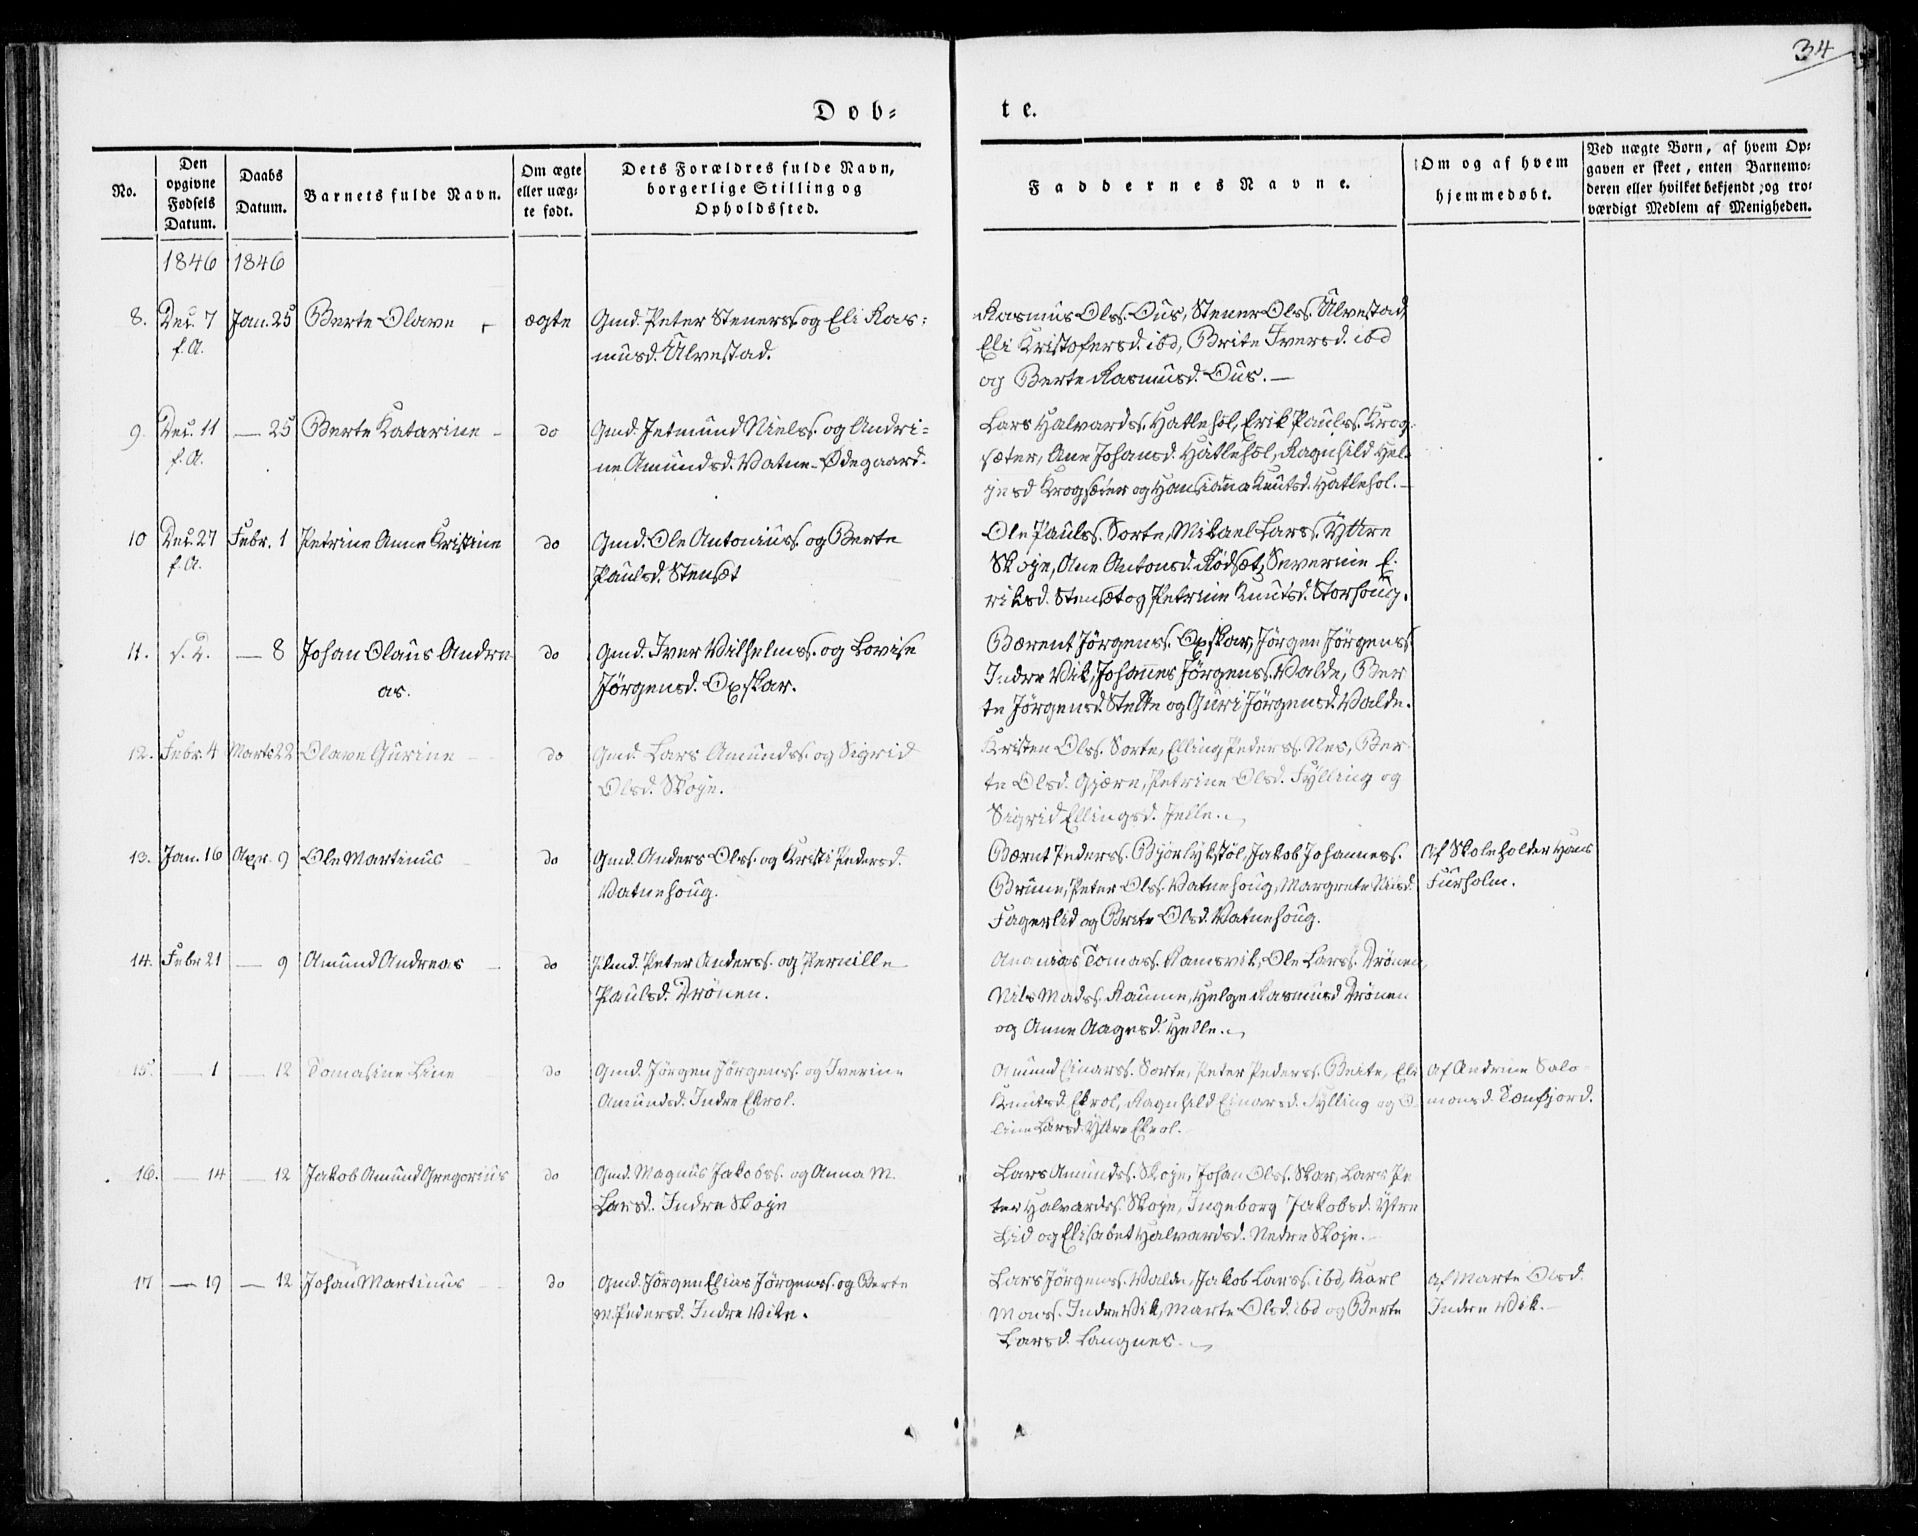 34
Døb-
te.
No.
Den opgivne Fødsels Datum.
Daabs Datum.
Barnets fulde Navn.
Om ægte eller uæg-te født.
Dets Forældres fulde Navn, borgerlige Stilling og Opholdssted.
Faddernes Navne.
Om og af hvem hjemmedøbt.
Ved uægte Børn, af hvem Op-
gaven er skeet, enten Barnemo-
deren eller hvilket bekjendt, og tro-
værdigt Medlem af Menigheden.
1846 1846
8. Dec. 7 Jan. 25 Berte Olave ægte Gmd. Peter Steners. og Eli Ras-
f. A. musd. Ulvestad.
Rasmus Ols. Ous, Stener Ols. Ulvestad,
Eli Kristofersd. ibd, Brite Iversd. ibd
og Berte Rasmusd. Ous. —
9. Dec. 11 — 25 Berte Katarine do Gmd. Jetmund Niels. og Andri-
f. A. ne Amundsd. Vatne-Ødegaard.
Lars Halvards. Hatlehol, Erik Pauls. Krog-
sæter, Ane Johansd. Hatlehol, Ragnhild Hel-
jesd Krogsæter og Hansianna Knutsd. Hatlehol. —
10 Dec. 27 Febr. 1 Petrine Anne Kristine do Gmd. Ole Antonius. og Berte
f. A. Paulsd. Stensæt
Ole Pauls. Sorte, Mikael Lars. Yttre
Skoje, Ane Antonsd. Rødsæt, Severine E-
riksd. Stensæt og Petrine Knutsd. Storhoug.
11. s. D. — 8 Johan Olaus Andre- do Gmd. Iver Vilhelms. og Lovise
as. Jørgensd. Opskar.
Bærent Jørgens. Opskar, Jørgen Jørgens.
Indre Vik, Johannes Jørgens. Valde, Ber
te Jørgensd. Stette og Guri Jørgensd. Valde.
12. Febr. 4 Marts 22 Olave Gurine do Gmd. Lars Amunds. og Sigrid
Olsd. Skoje.
Kristen Ols. Sorte, Elling Peders. Nes, Ber-
te Olsd. Gjære, Petrine Olsd. Fylling og
Sigrid Ellingsd. Helle.
13. Jan. 16 Apr. 9 Ole Martinus do Gmd. Anders Ols. og Kristi Pedersd.
Vatnehoug.
Bærnt Peders. Bjørlykstøl, Jakob Johannes.
Brune, Peter Ols. Vatnehoug, Margrete Nilsd.
Fagerlid og Brite Olsd. Vatnehoug.
Af Skoleholder Hans
Furholm.
14. Febr 21 — 9 Amund Andreas do Plmd. Peter Anders. og Pernille
Paulsd. Drønen.
Ananias Tomas. Ramsvik, Ole Lars. Drønen,
Nils Mads. Raume, Helge Rasmusd Drønen
og Anne Aagesd. Helle.
15. — 1 — 12 Tomasine Line do Gmd. Jørgen Jørgens. og Iverine
Amundsd. Indre Ekrol.
Amund Einars. Sorte, Peter Peders. Beite, Eli
Knutsd. Ekrol, Ragnhild Einarsd. Fylling og O-
line Larsd. Yttre Ekrol.
Af Andrine Salo-
monsd. Tenfjord.
16. — 14 — 12 Jakob Amund Gregorius do Gmd. Magnus Jakobs. og Anna M.
Larsd. Indre Skoje
Lars Amunds. Skoje, Johan Ols. Skar, Lars Pe
ter Halvards. Skoje, Ingeborg Jakobsd. Ytre
Lid og Elisabet Halvardsd. Nedre Skoje.
17 — 19 — 12 Johan Martinus do Gmd. Jørgen Elias Jørgens. og Berte
M. Pedersd. Indre Vike.
Lars Jørgens. Valde, Jakob Lars. ibd, Karl
Mons. Indre Vik, Marte Olsd. ibd og Berte
Larsd. Langnes.
Af Marte Olsd.
Indre Vik.